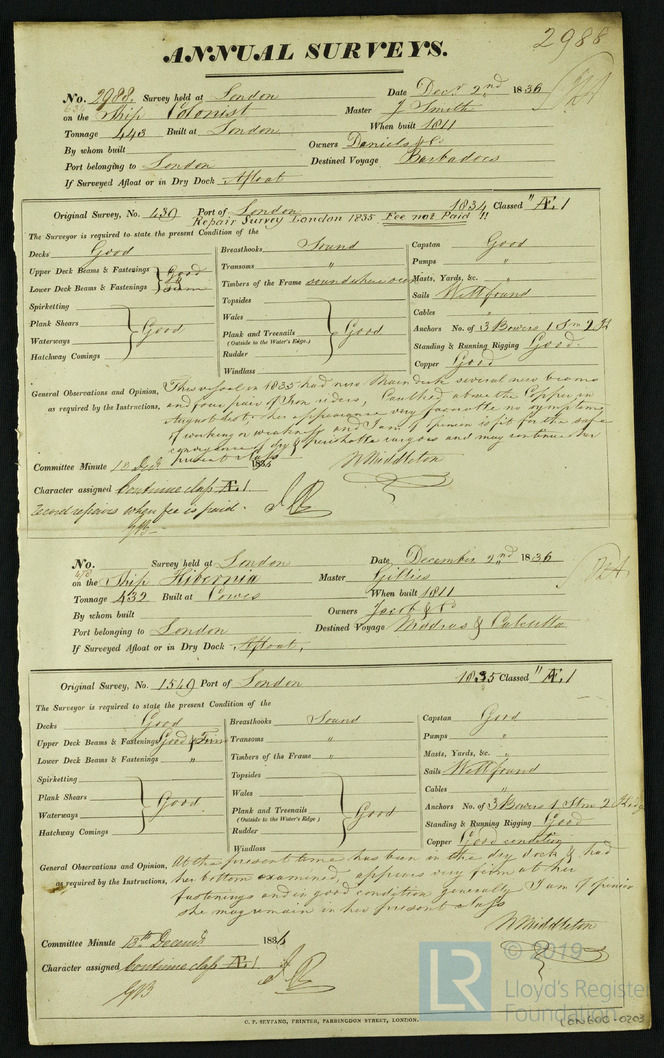 2988
ANNUAL SURVEYS.
No. 2988. Survey held at London Date Decr 2nd 1836
on the Ship Colonist Master J Smith
Tonnage 443 Built at London When built 1811
By whom built Owners Daniels & Co
Port belonging to London Destined Voyage Barbadoes
If Surveyed Afloat or in Dry Dock Afloat
Original Survey, No. 439 Port of London 1834 Classed "Æ,1
Repair Survey London 1835 Fee not Paid !!
The Surveyor is required to state the present Condition of the
Decks Good Breasthooks Sound Capstan Good
Upper Deck Beams & Fastenings Good Transoms " Pumps "
Lower Deck Beams & Fastenings Firm Timbers of the Frame sound where seen Masts, Yards, &c. "
Spirketting Topsides Sails Well found
Plank Shears Good Wales Cables "
Waterways Plank and Treenails Good Anchors No. of 3 Bowers 1 Stm 2 K
(Outside to the Water's Edge.)
Hatchway Comings Rudder Standing & Running Rigging Good.
Windlass Copper Good
General Observations and Opinion, This vessel in 1835 had new Main deck several new beams
as required by the Instructions, and four pair of Iron riders, Caulked above the Copper in
August last, her appearance very favorable no symptoms
of working or weakness and I am of opinion is fit for the safe
conveyance of dry & perishable cargoes and may continue her
present class
Committee Minute 12 Decr 1836 W Middleton
Character assigned Continue class Æ 1
record repairs when fee is paid.
No. Survey held at London Date December 2nd 1836
on the Ship Hibernia Master Gillies
Tonnage 432 Built at Cowes When built 1811
By whom built Owners Jacob & Co
Port belonging to London Destined Voyage Madras & Calcutta
If Surveyed Afloat or in Dry Dock Afloat,
Original Survey, No. 1549 Port of London 1835 Classed "Æ,1
The Surveyor is required to state the present Condition of the
Decks Good Breasthooks Sound Capstan Good
Upper Deck Beams & Fastenings Good & Firm Transoms " Pumps "
Lower Deck Beams & Fastenings " Timbers of the Frame " Masts, Yards, &c. "
Spirketting Topsides Sails Well found
Plank Shears Good Wales Cables "
Waterways Plank and Treenails Good Anchors No. of 3 Bowers 1 Stm 2
(Outside to the Water's Edge)
Hatchway Comings Rudder Standing & Running Rigging Good
Windlass Copper Good condition
General Observations and Opinion, At the present time has been in the dry dock & had
as required by the Instructions, her bottom examined, appears very firm at her
fastenings and in good condition generally I am of opinion
she may remain in her present class
W Middleton
Committee Minute 13th Decemr 1836
Character assigned Continue class Æ 1
C. F. SEYFANG, PRINTER, FARRINGDON STREET, LONDON.
LR © 2019
Lloyd's Register
Foundation
LON606-0203